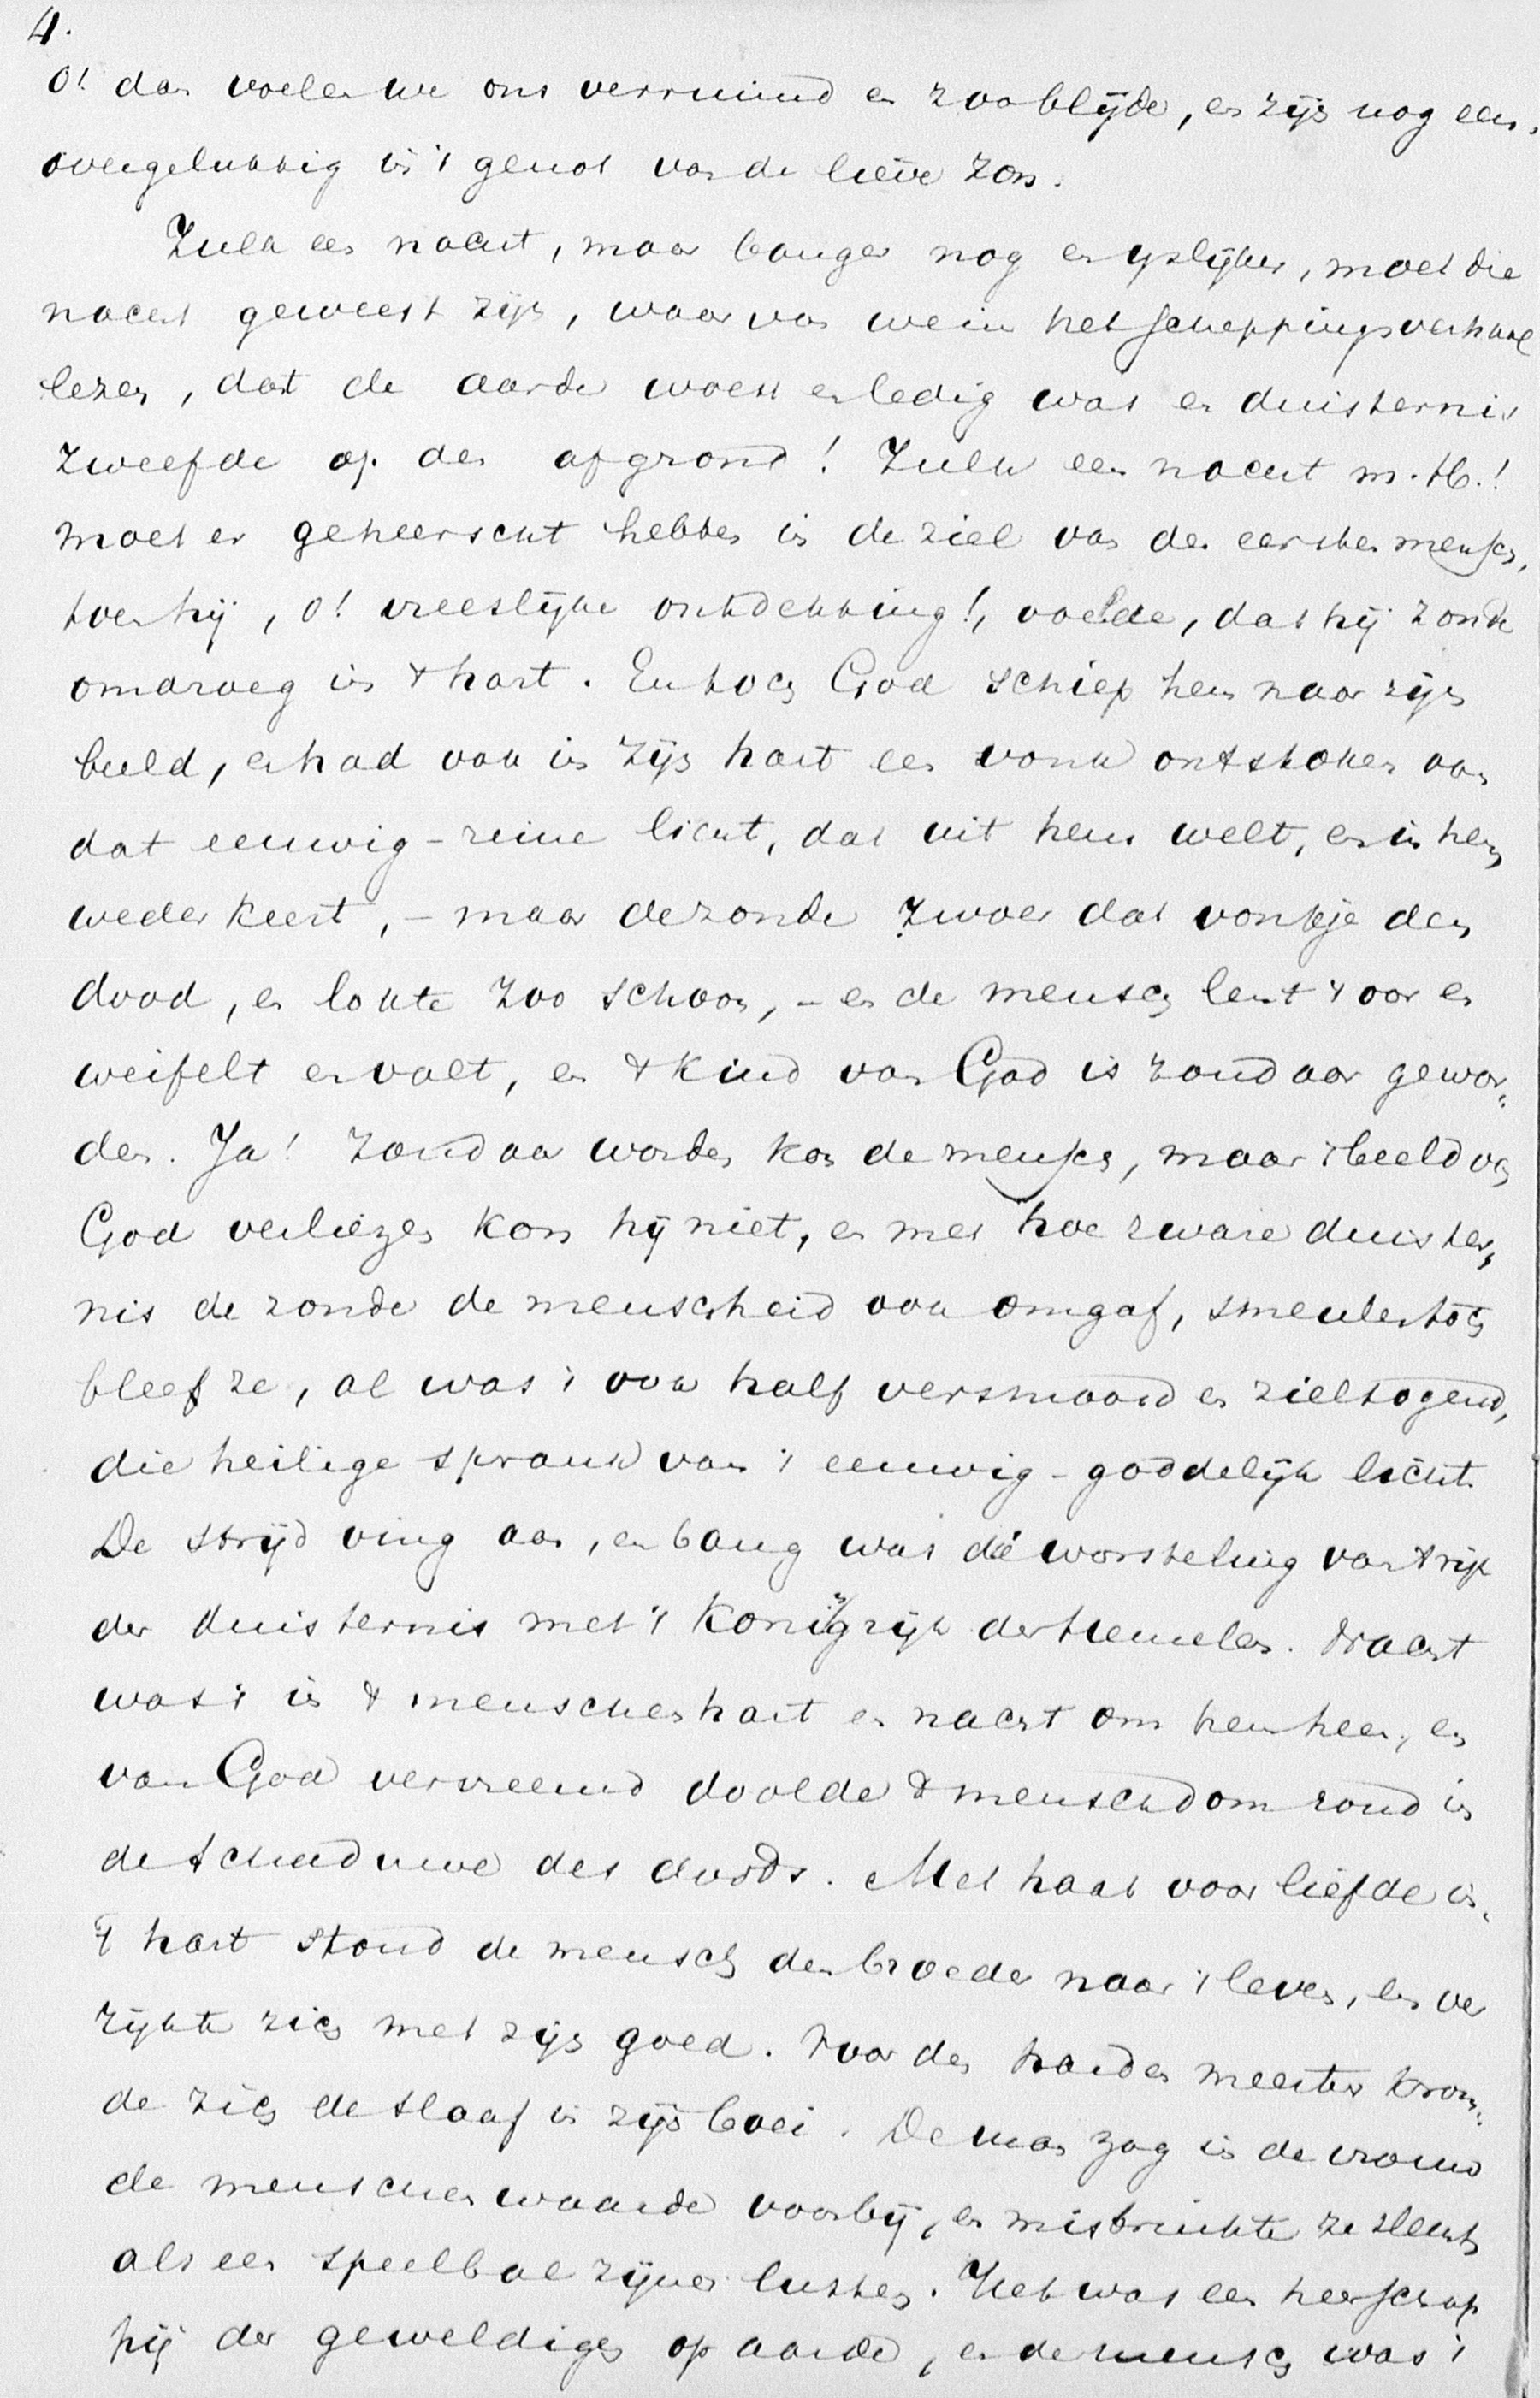 4.
O! dan voelen we ons verruimd en zoo blijde, en zijn nog eens
overgelukkig in 't genot van de lieve zon.
Zulk een nacht, maar banger nog en ijslijker, moet die
nacht geweest zijn, waarvan we in het scheppingsverhaal
lezen, dat de aarde woest en ledig was en duisternis
zweefde op den afgrond! Zulk een nacht m. H.!
moet er geheerscht hebben in de ziel van den eersten mensch,
toen hij, o! vreeslijke ontdekking!, voelde, dat hij zonde
omdroeg in 't hart. En toch God schiep hem naar zijn
beeld, en had ook in zijn hart een vonk ontstoken van
dat eeuwig-reine licht, dat uit hem welt, en in hem
wederkeert, - maar de zonde zwoer dat vonkje den
dood, en lokte zoo schoon, - en de mensch leent 't oor en
weifelt en valt, en 't kind van God is zondaar gewor-
den. Ja! zondaar worden kon de mensch, maar 't beeld van
God verliezen kon hij niet, en met hoe zware duister-
nis de zonde de menschheid ook omgaf, smeulen toch
bleef ze, al was 't ook half versmoord en zieltogend,
die heilige sprank van 't eeuwig-goddelijk licht.
De strijd ving aan, en bang was dé worsteling van 't rijk
der duisternis met 't Koningrijk der Hemelen. Nacht
was 't in 't menschenhart en nacht om hem heen, en
van God vervreemd doolde 't menschdom rond in
de schaduwe des doods. Met haat voor liefde in
't hart stond de mensch den broeder naar 't leven, en ver
rijkte zich met zijn goed. Voor den harden meester krom-
de zich de slaaf in zijn boei. De man zag in de vrouw
de menschenwaarde voorbij, en misbruikte ze slechts
als een speelbal zijner lusten. Het was een heerschap
pij der geweldigen op aarde, en de mensch was 't